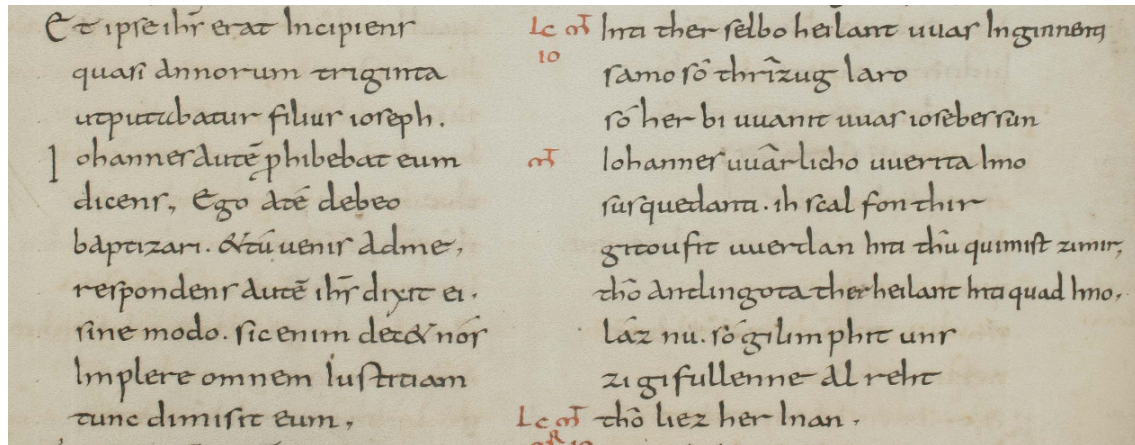 Et ipse ihs̄ erat Incipiens
quasi annorum triginta
utputabatur filius ioseph.
Iohannes autē ꝓhibebat eum
dicens, Ego atē debeo
baptizari. &tú uenis adme,
respondens autē ihs̄ dixit ei.
sine modo. sic enim dec& nós
Implere omnem Iustitiam
tunc dimisit eum,
Lc mt̄ Inti ther selbo heilant uuas Inginnenti
io samo sô thrîzug Iaro
só her bi uuanit uuas iosebes sun
mt̄ Iohannes uuârlicho uuerita Imo
sus quedanti. ih scal fon thir
gitoufit uuerdan Inti thû quimist zimir,
thô antlingota ther heilant Inti quad Imo,
láz nu. só gilimphit uns
zi gifullenne al reht
Lc mt̄ thô liez her Inan,